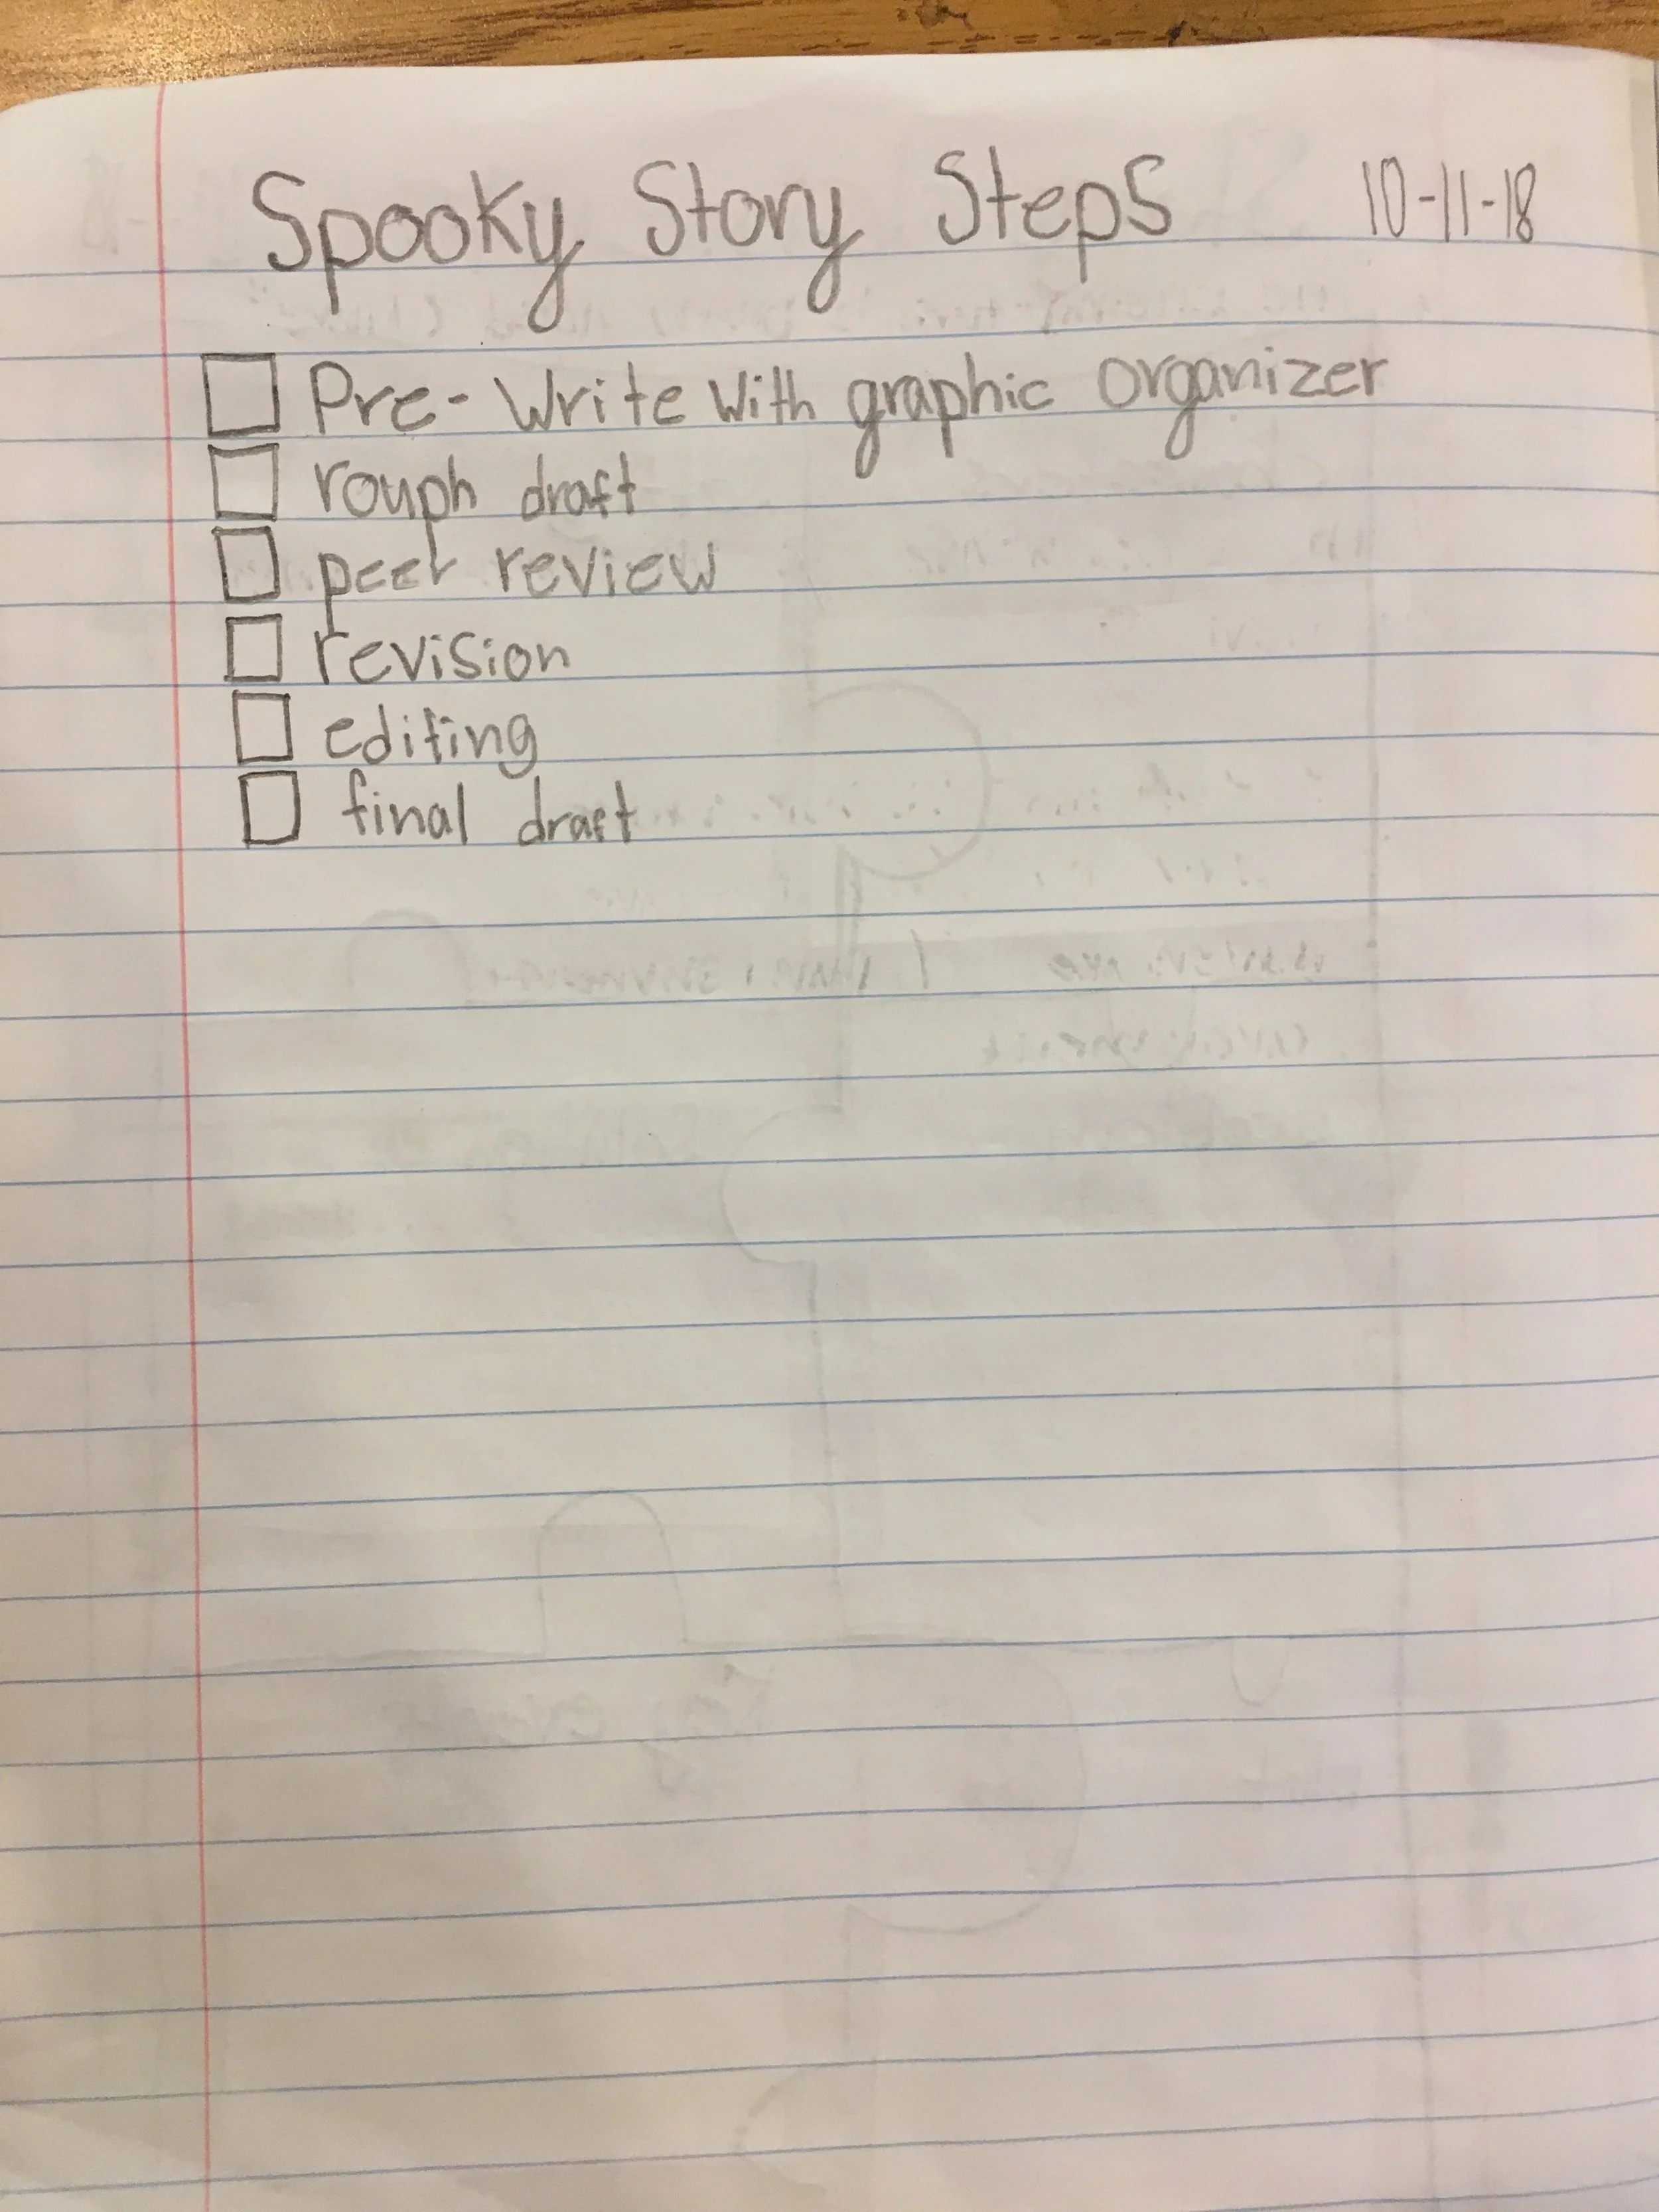 Spooky Story Steps 10-11-18
Pre-Write With graphic organizer
rough draft
peer review
revision
editing
final draft